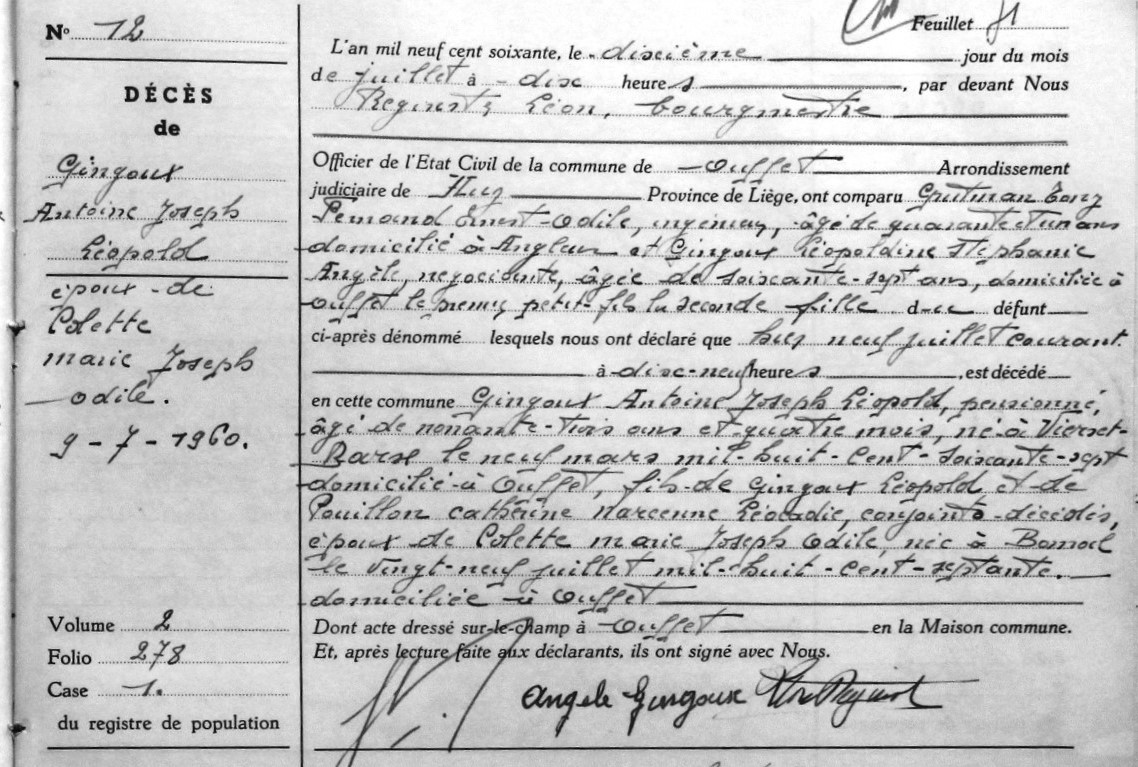 N° 12
DÉCÈS
de
Gingoux
Antoine Joseph
Léopold
époux de
Colette
marie Joseph
odile.
9-7-1960.
Volume 2
Folio 278
Case 1.
du registre de population
Feuillet
L'an mil neuf cent soixante, le dixième jour du mois
de juillet à dix heures, par devant Nous
Léon, bourgmestre
Officier de l'Etat Civil de la commune de Ouffet Arrondissement
judiciaire de Huy Province de Liège, ont comparu
Ernest Odile, ingénieur, âgé de quarante et un ans
domicilié à Angleur et Gingoux Léopoldine Stéphanie
Angèle, négociante, âgée de soixante-sept ans, domiciliée à
Ouffet le premier petit-fils la seconde fille du défunt
ci-après dénommé lesquels nous ont déclaré que hier neuf juillet courant
à dix-neuf heures, est décédé
en cette commune Gingoux Antoine Joseph Léopold, pensionné,
âgé de nonante-trois ans et quatre mois, né à Vierset-
Barse le neuf mars mil-huit-cent-soixante-sept
domicilié à Ouffet, fils de Gingoux Léopold et de
Pouillon Catherine Léocadie, conjoints décédés,
époux de Colette marie Joseph Odile, née à Bomal
le vingt-neuf juillet mil-huit-cent-septante.
domiciliée à Ouffet
Dont acte dressé sur-le-champ à Ouffet en la Maison commune.
Et, après lecture faite aux déclarants, ils ont signé avec Nous.
Angele Gingoux